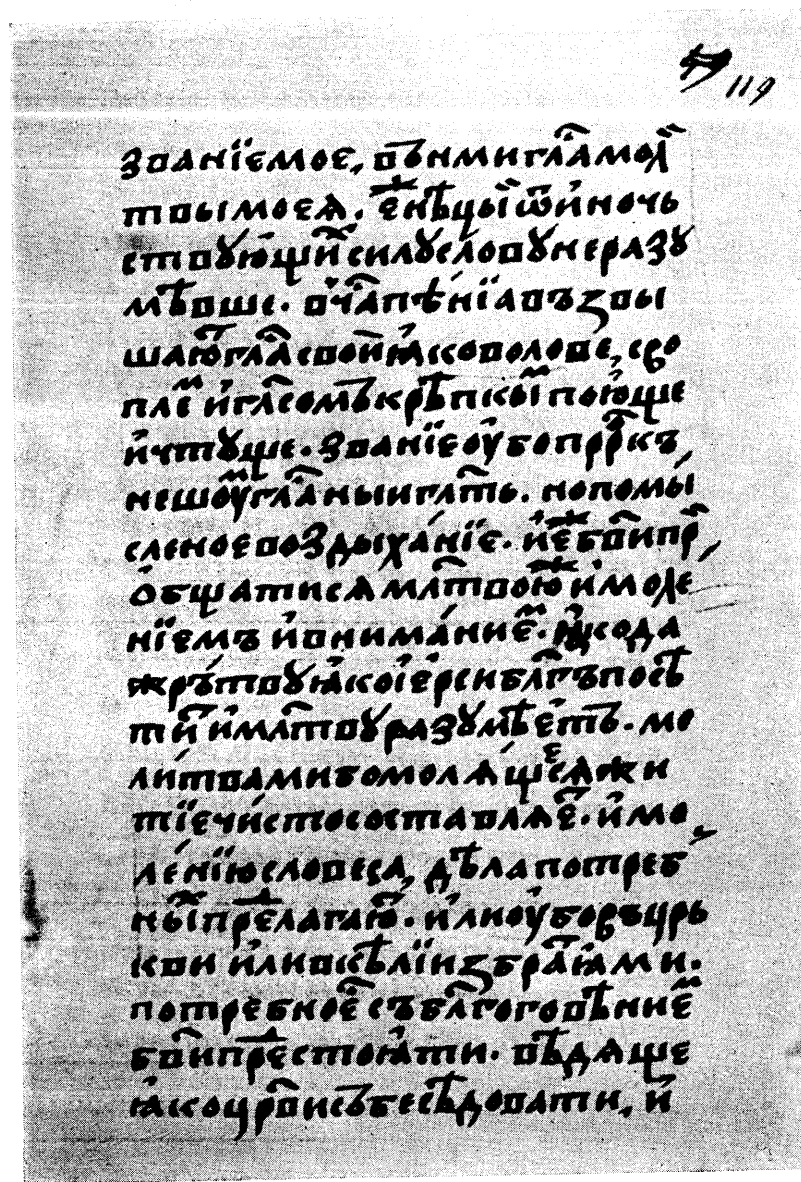 119
званїемое, вънмигла́мол҃
твымоеѧ. е҆нѣцыи҆ѿи҆ночь
ствꙋю҆щи҆ силꙋсловꙋнеразꙋ
мѣвше. в̾ча́пѣнїавъзвы
шаю҆гла́свои҆ꙗ҆кововолове, сво
пле́ и҆гласомъкрѣпкои҆пою҆ще
и҆чтꙋще. званїеоу҆бопрⷪ҇ркъ
нешоу҆гла́ныиглт҃ь. нопомы́
сленоевоздыха́нїе. и҆е҆бв҃ипрⷪ҇
о҆бщатисѧмлт҃вою҆и҆моле
нїемъ и҆внима́ние҆. ꙗ҆кода
жрътвꙋꙗ҆коїе҆рсиблг҃ъпосѣ
ти҆ и҆млт҃вꙋразꙋмѣе҆тъ. мо
ли́твамибомолѧ́щеⷭ҇ѧжи
тїечи́стосоставлѧе҆. и҆мо
ле́нїюсловеса, дѣлапотреб
ны҆прелагаю҆. и҆лиоу҆бовъцрь
кви и҆ливкѣлїизбра́ꙗ҆ми.
потребное҆съблг҃оговѣние҆
бв҃ипрестоꙗ҆ти. вѣдѧще
ꙗ҆коцр҃висъбесѣдовати, и҆